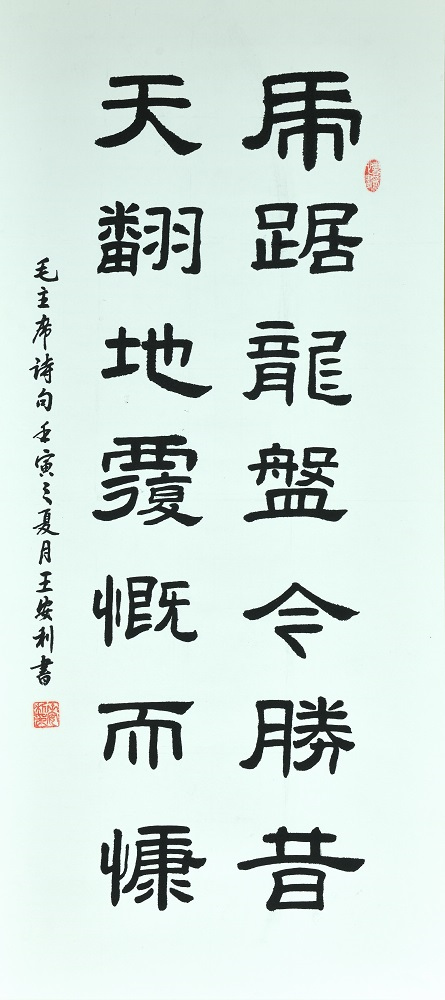 虎踞龍盤今勝昔
天翻地覆慨而慷
毛主席詩句壬寅之夏月王安利書